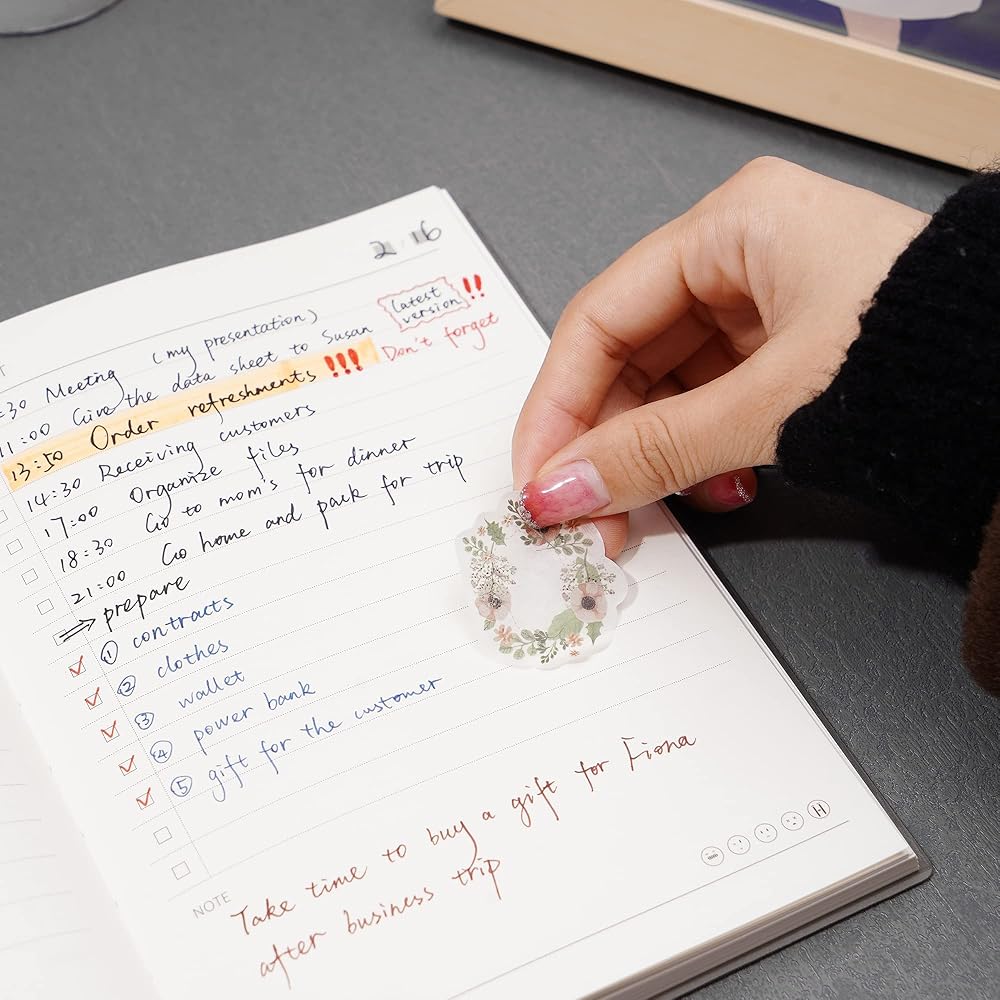 2 16
:30 Meeting (my presentation)
11:00 Give the data sheet to Susan
Latest version !!
Don't forget
13:50 Order refreshments !!!
14:30 Receiving customers
17:00 Organize files
18:30 Go to mom's for dinner
21:00 Go home and pack for trip
⇒ prepare
① contracts
② clothes
③ wallet
④ power bank
⑤ gift for the customer
NOTE
Take time to buy a gift for Fiona
after business trip
H